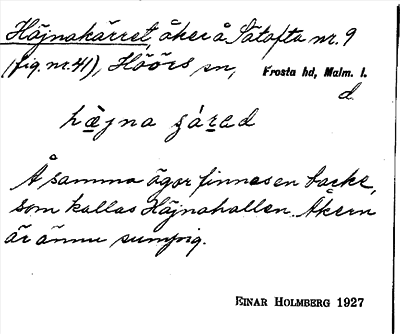 Höjnakärret, åker å Sätofta nr. 9
(fig. nr. 41), Höörs sn, Frosta hd, Malm. l.
d.
hö̀jna ɟárəd
Å samma ägor finnes en backe,
som kallas Höjnahallen. Åkern
är ännu sumpig.
EINAR HOLMBERG 1927